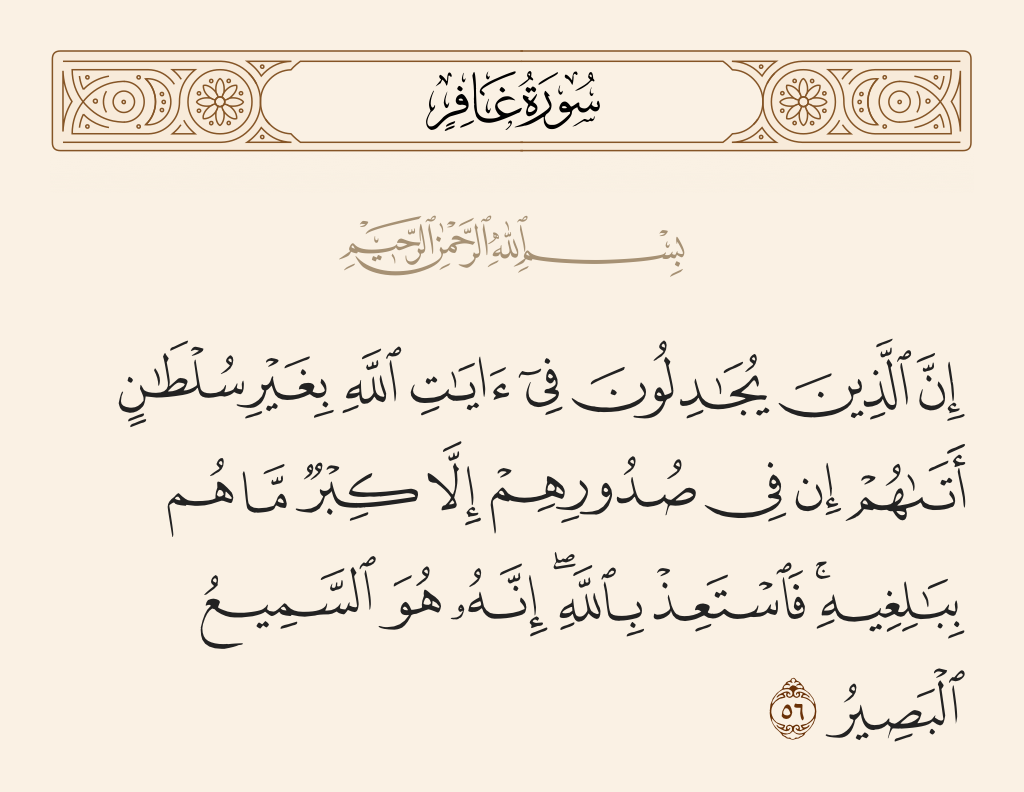 سُورَةُ غَافِرٍ
بِسْمِ ٱللَّهِ ٱلرَّحْمَٰنِ ٱلرَّحِيمِ
إِنَّ ٱلَّذِينَ يُجَـٰدِلُونَ فِىٓ ءَايَـٰتِ ٱللَّهِ بِغَيْرِ سُلْطَـٰنٍ
أَتَىٰهُمْ إِن فِى صُدُورِهِمْ إِلَّا كِبْرٌ مَّا هُم
بِبَـٰلِغِيهِ ۚ فَٱسْتَعِذْ بِٱللَّهِ ۖ إِنَّهُۥ هُوَ ٱلسَّمِيعُ
ٱلْبَصِيرُ ٥٦